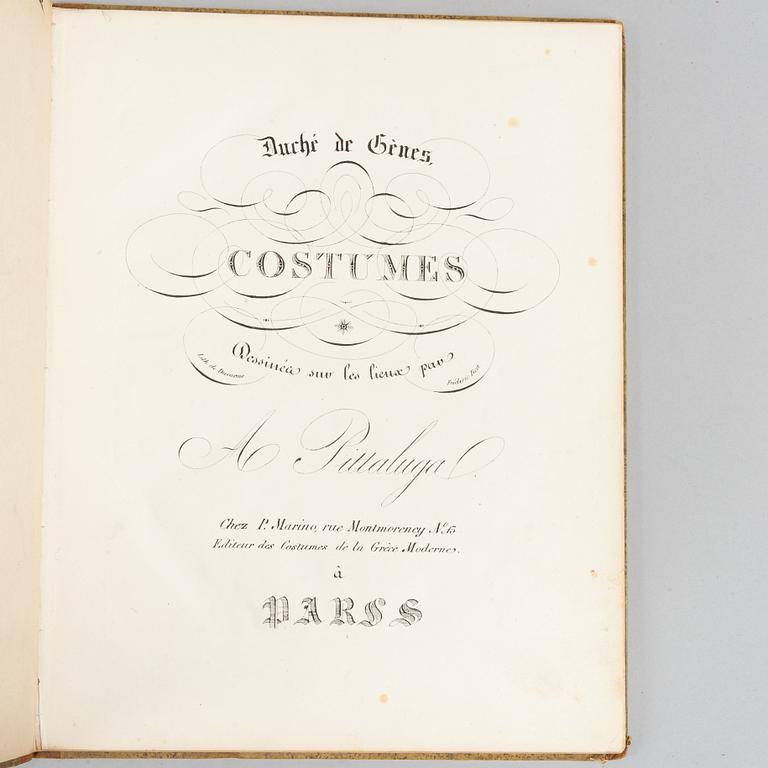 Duché de Gênes,
COSTUMES
Dessinés sur les lieux par
Lith. de Ducarme
Frédéric
A Pittaluga
Chez P. Marino, rue Montmorency No. 15
Editeur des Costumes de la Grèce Moderne.
à
PARIS